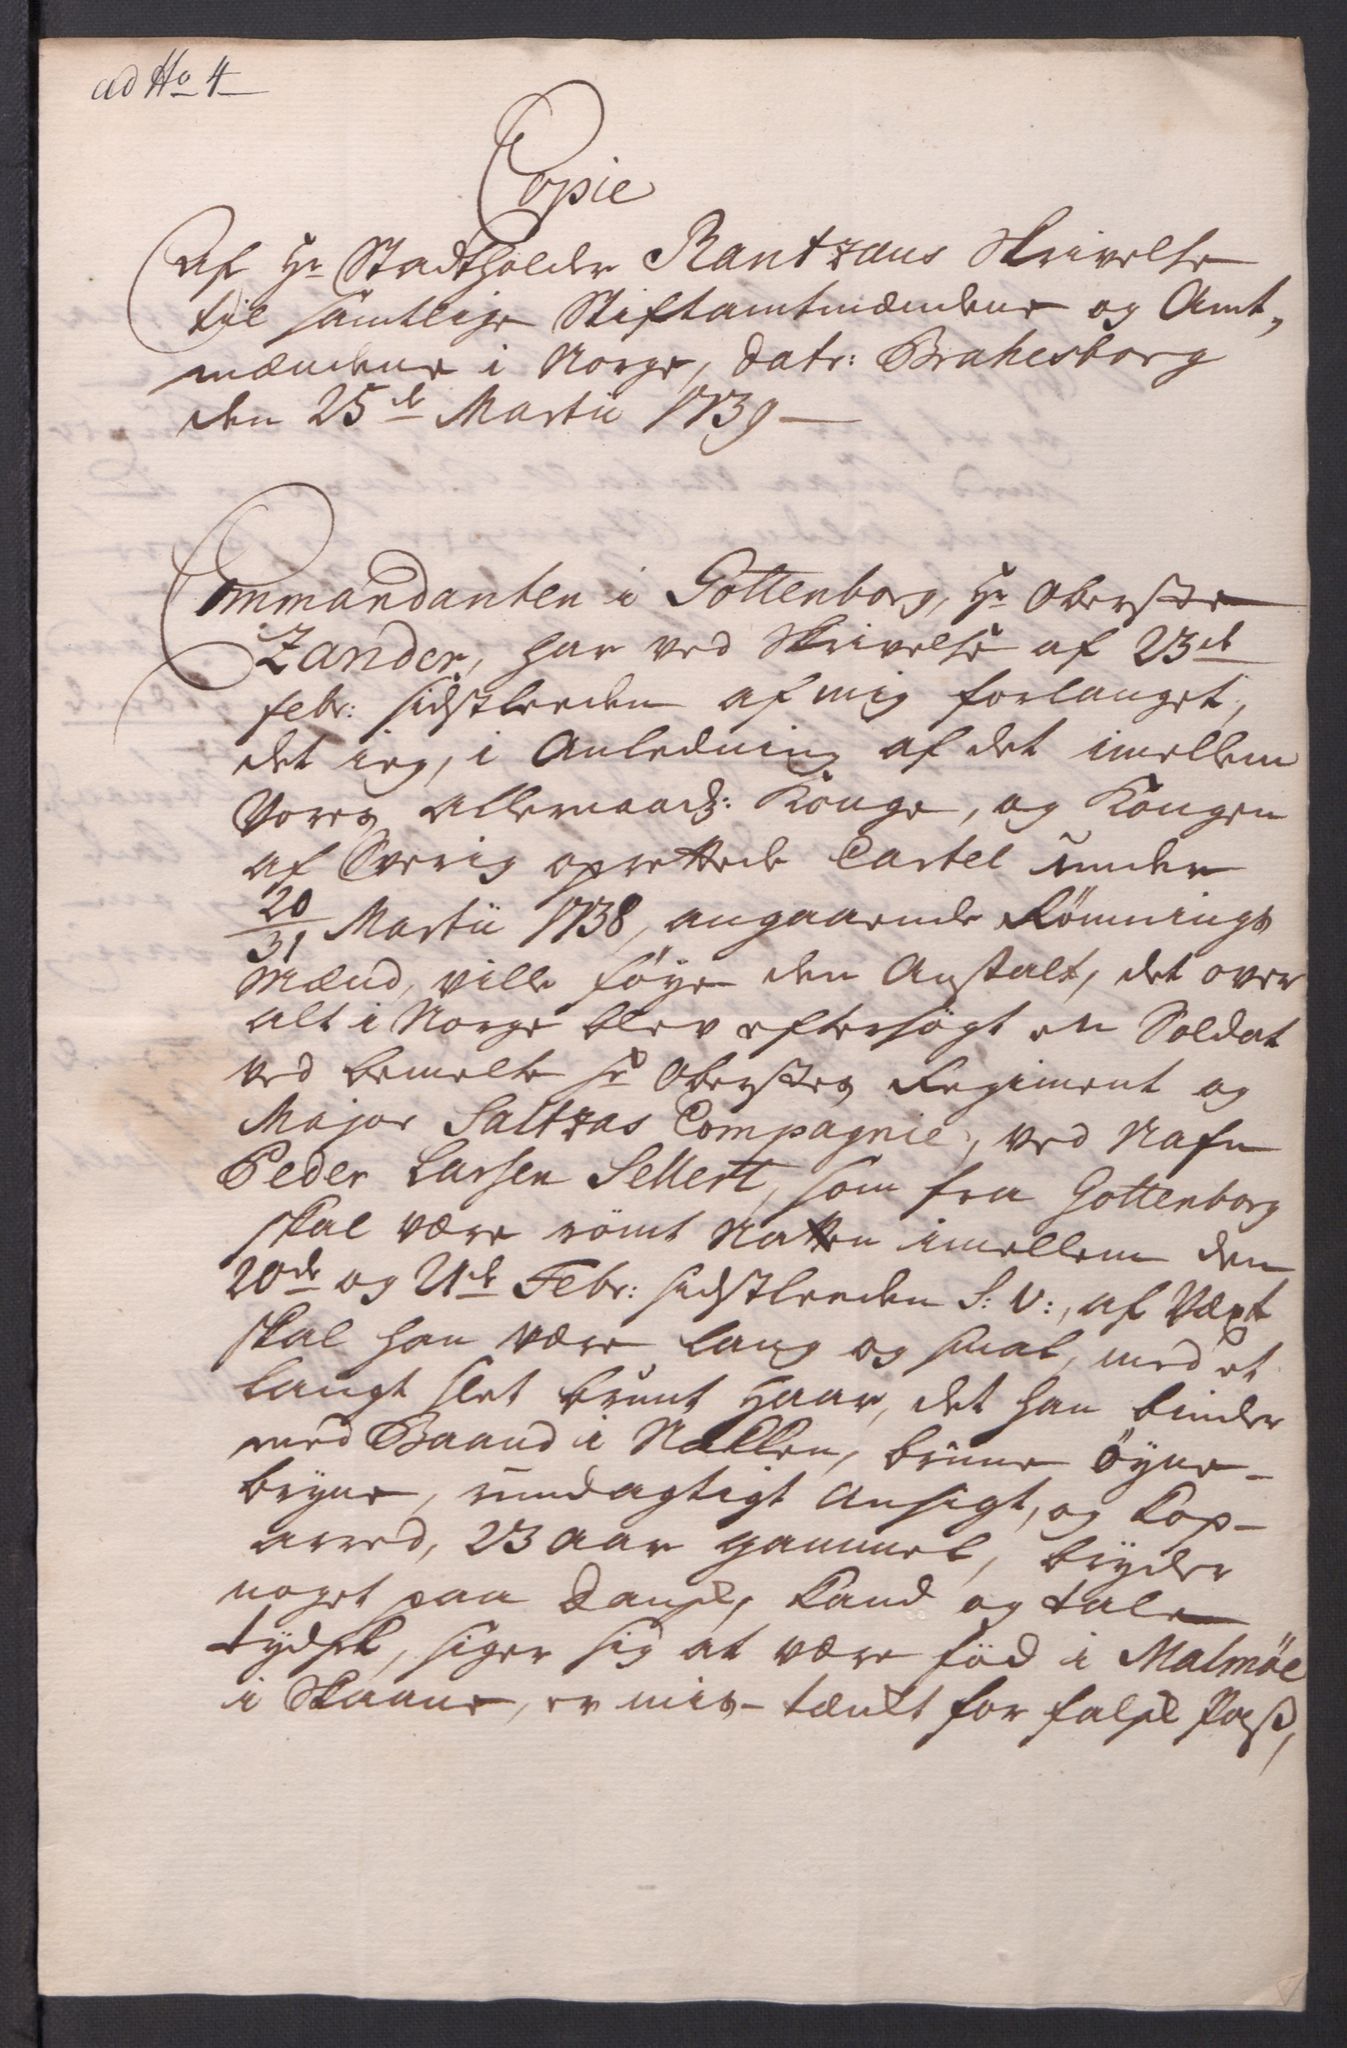 ad No 4
Copie
Af Hr Stadtholder Rantzaus Skrivelse
til samtlige Stiftamtmændene og Amt,
mændene i Norge, datr: Brahesborg
den 25de Martii 1739
Commandanten i Gottenborg, Hr Oberste
Zander, har ved Skrivelse af 23de
febr: sidstleeden af mig forlanget,
det ieg, i Anledning af det imellem
Vores allernaads: Konge, og Kongen
af Sverig oprettede Cartel under
20/31 Martii 1738, angaaende Rømnings
Mænd, ville føye den Anstalt, det over
alt i Norge blev eftersøgt en Soldat
ved bemelte Hr Oberstes Regiment og
Major Saltzas Compagnie, ved Nafn
Peder Larsen Sellert, som fra Gottenborg
skal være rømt Natten imellem den
20de og 21de Febr: sidstleeden S: V:, af Vext
skal han være lang og smal, med et
langt slet brunt Haar, det han binder
med Baand i Nakken, brune Øyne-
bryne, rundagtigt Ansigt, og Kop-
arred, 23 aar gammel, bryder
noget paa Dansk, kand og tale
tydsk, siger sig at være fød i Malmöe
i Skaane, er mis-tænkt for falsk Pass,